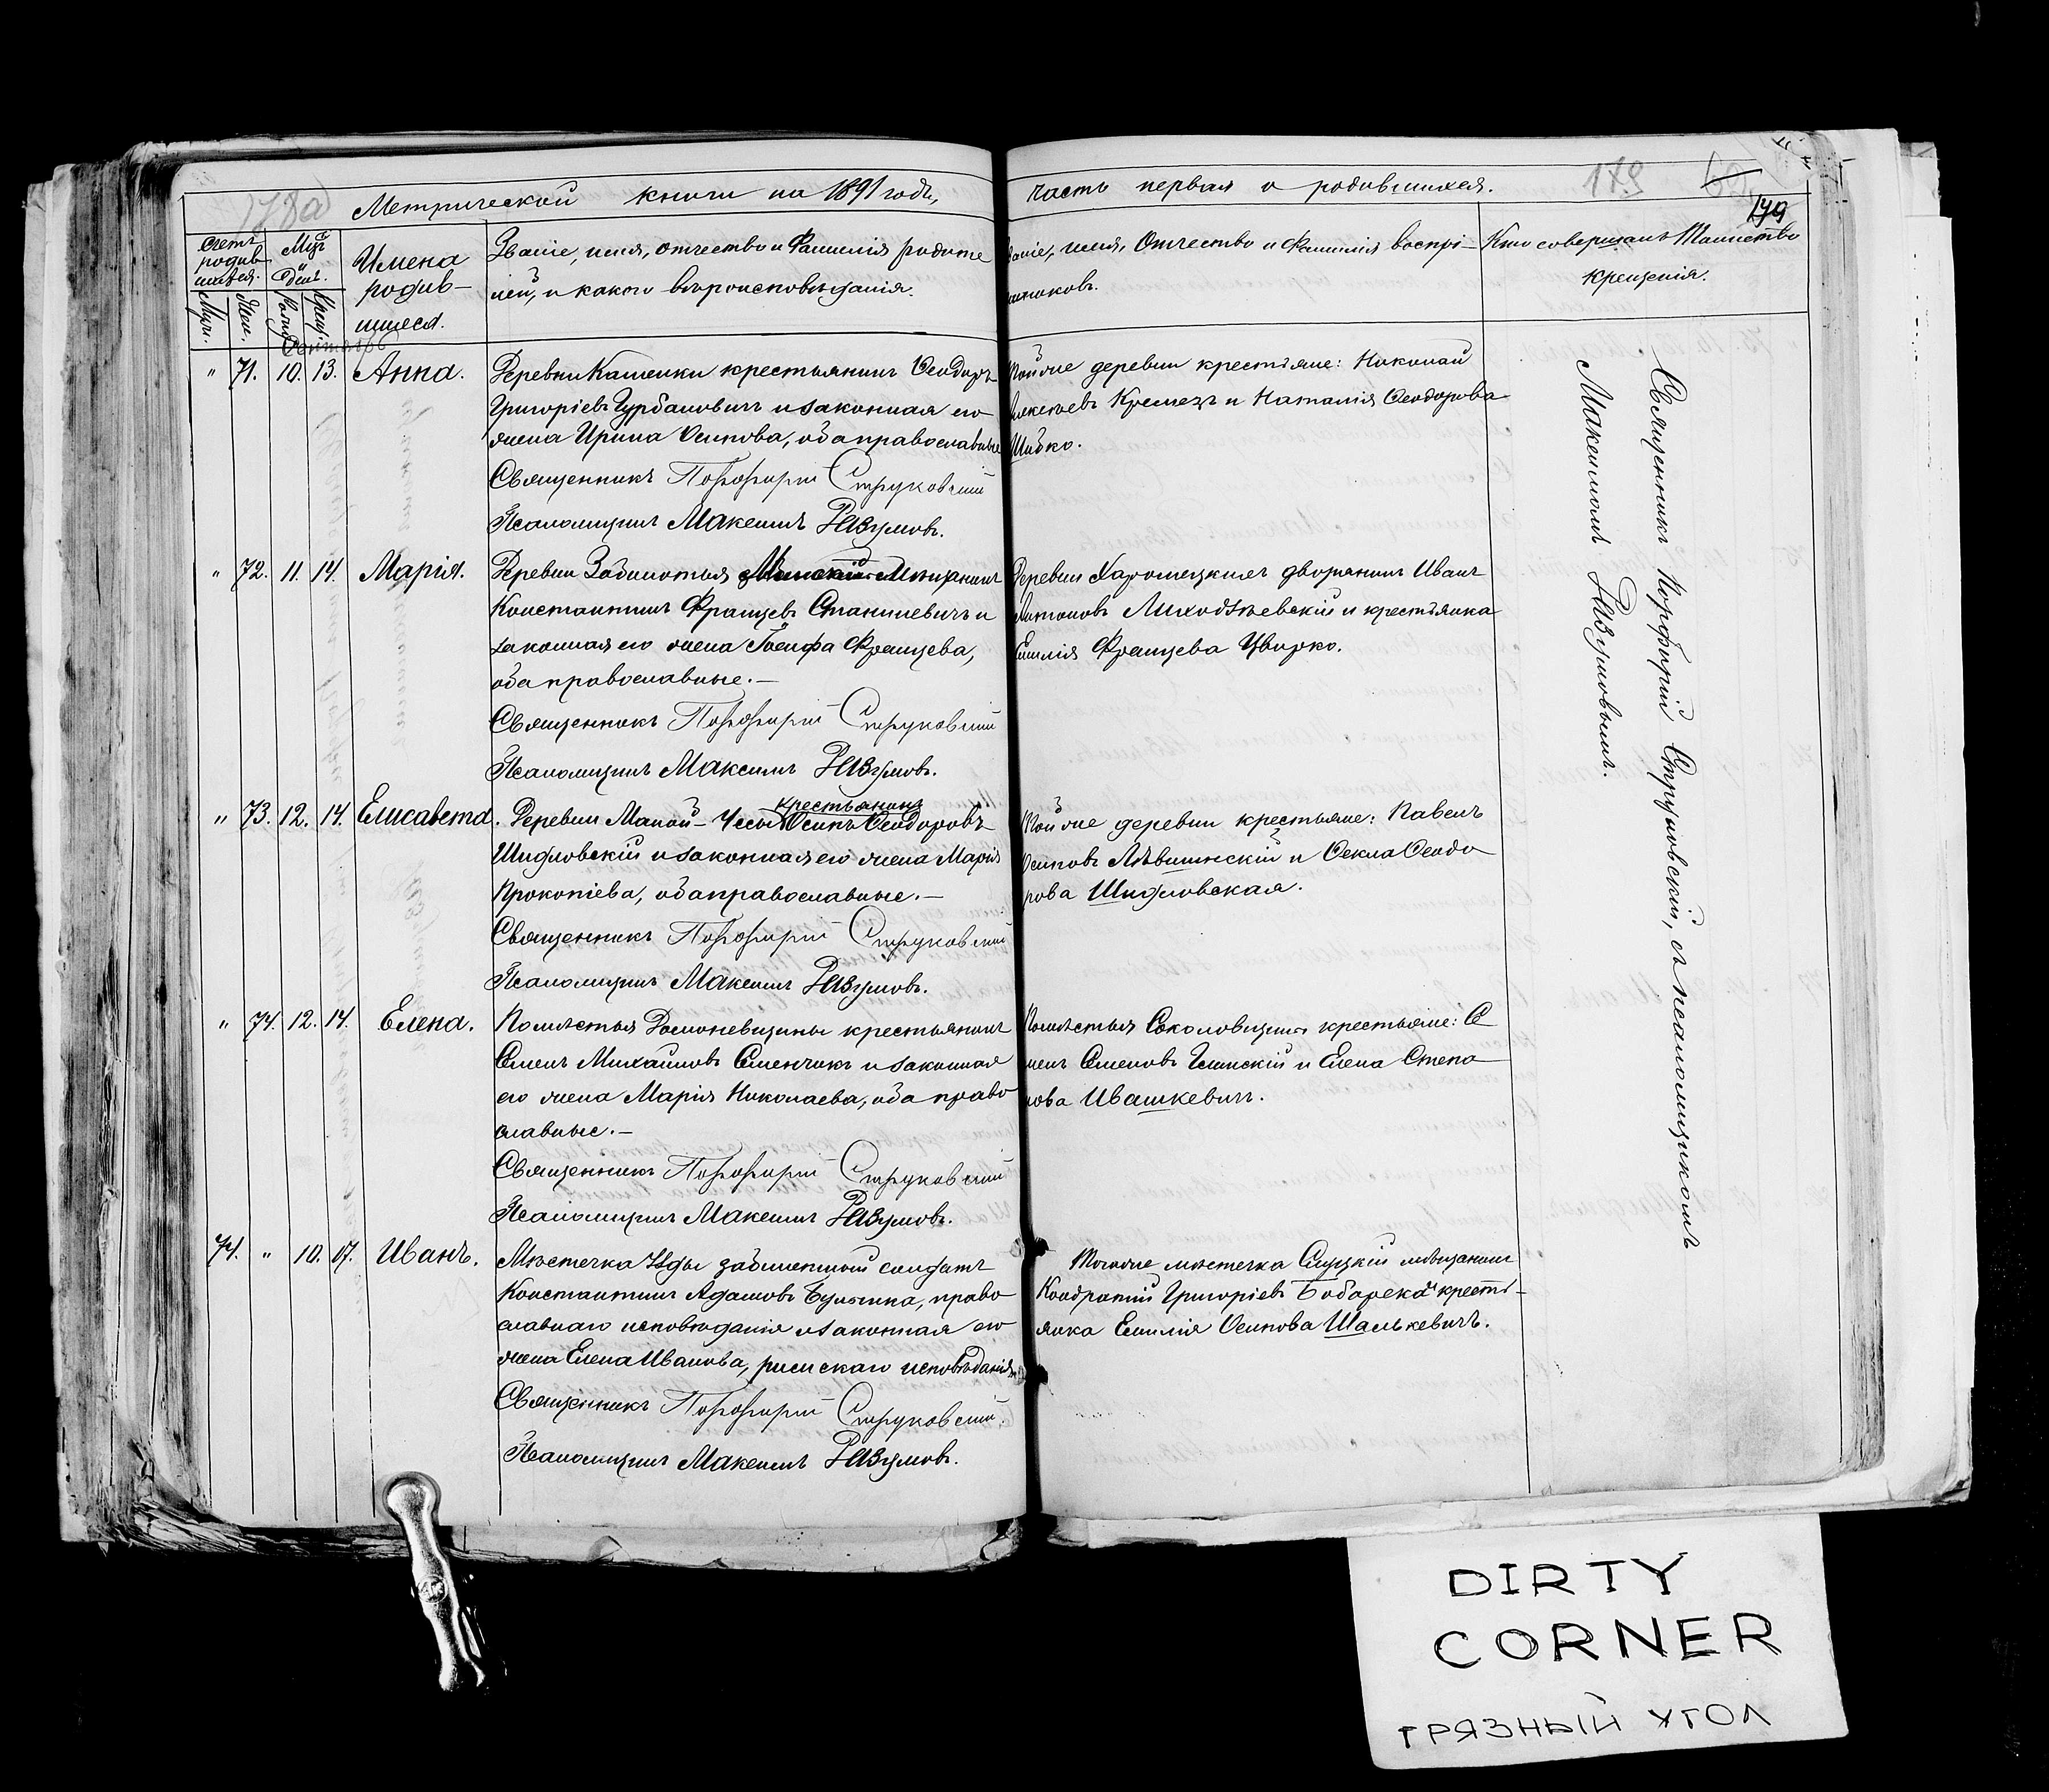 Метрической книги на 1891 годъ,
часть первая о родившихся.
179
Счетъ родив-шихся.
Муж.
Жен.
День.
Крещ.
Имена родив-шихся.
Званіе, имя, отчество и Фамилія родите
лей, и какого вѣроисповѣданія.
имя, Отчество и Фамилія воспрі-
емниковъ.
Кто совершалъ Таинство
крещенія.
Сентябрь
" 71. 10. 13. Анна.
Деревни Каменки крестьянинъ Ѳеодоръ
Григоріевъ Гурбановичъ и законная его
жена Ирина Осипова, оба православные
Священникъ Порфирій Струковскій
Псаломщикъ Максимъ Разумовъ.
Той же деревни крестьяне: Николай
Алексѣевъ Кремезъ и Наталія Ѳеодорова
Шибко.
" 72. 11. 14. Марія.
Деревни Заболотья Мѣщанинъ
Константинъ Францевъ Станишевичъ и
законная его жена Іосифа Францева,
оба православные.—
Священникъ Порфирій Струковскій
Псаломщикъ Максимъ Разумовъ.
Деревни дворянинъ Иванъ
Антоновъ Лиходѣевскій и крестьянка
Емилія Францева Цвирко.
" 73. 12. 14. Елисавета.
крестьянинъ
Деревни Малой- Осипъ Ѳеодоровъ
Шидловскій и законная его жена Марія
Прокопіева, оба православные.—
Священникъ Порфирій Струковскій
Псаломщикъ Максимъ Разумовъ.
Той же деревни крестьяне: Павелъ
Осиповъ Лѣвшинскій и Ѳекла Ѳеодо
рова Шидловская.
" 74. 12. 14. Елена.
Помѣстья Домоневщины крестьянинъ
Семенъ Михаиловъ Семенчикъ и законная
его жена Марія Николаева, оба право
славные.—
Священникъ Порфирій Струковскій
Псаломщикъ Максимъ Разумовъ.
Помѣстья Соколовщины крестьяне: Се
менъ Семеновъ Глинскій и Елена Степа
нова Ивашкевичъ.
74. " 10. 17. Иванъ.
Мѣстечка Узды забилетный солдатъ
Константинъ Адамовъ Булыжка, право
славнаго исповѣданія и законная его
жена Елена Иванова, римскаго исповѣданія.
Священникъ Порфирій Струковскій.
Псаломщикъ Максимъ Разумовъ.
Того же мѣстечка Слуцкій мѣщанинъ
Кондратій Григоріевъ Бобарека и кресть-
янка Емилія Осипова Шалькевичъ.
Священникъ Порфирій Струковскій, съ псаломщикомъ
Максимомъ Разумовымъ.
DIRTY
CORNER
ГРЯЗНЫЙ УГОЛ